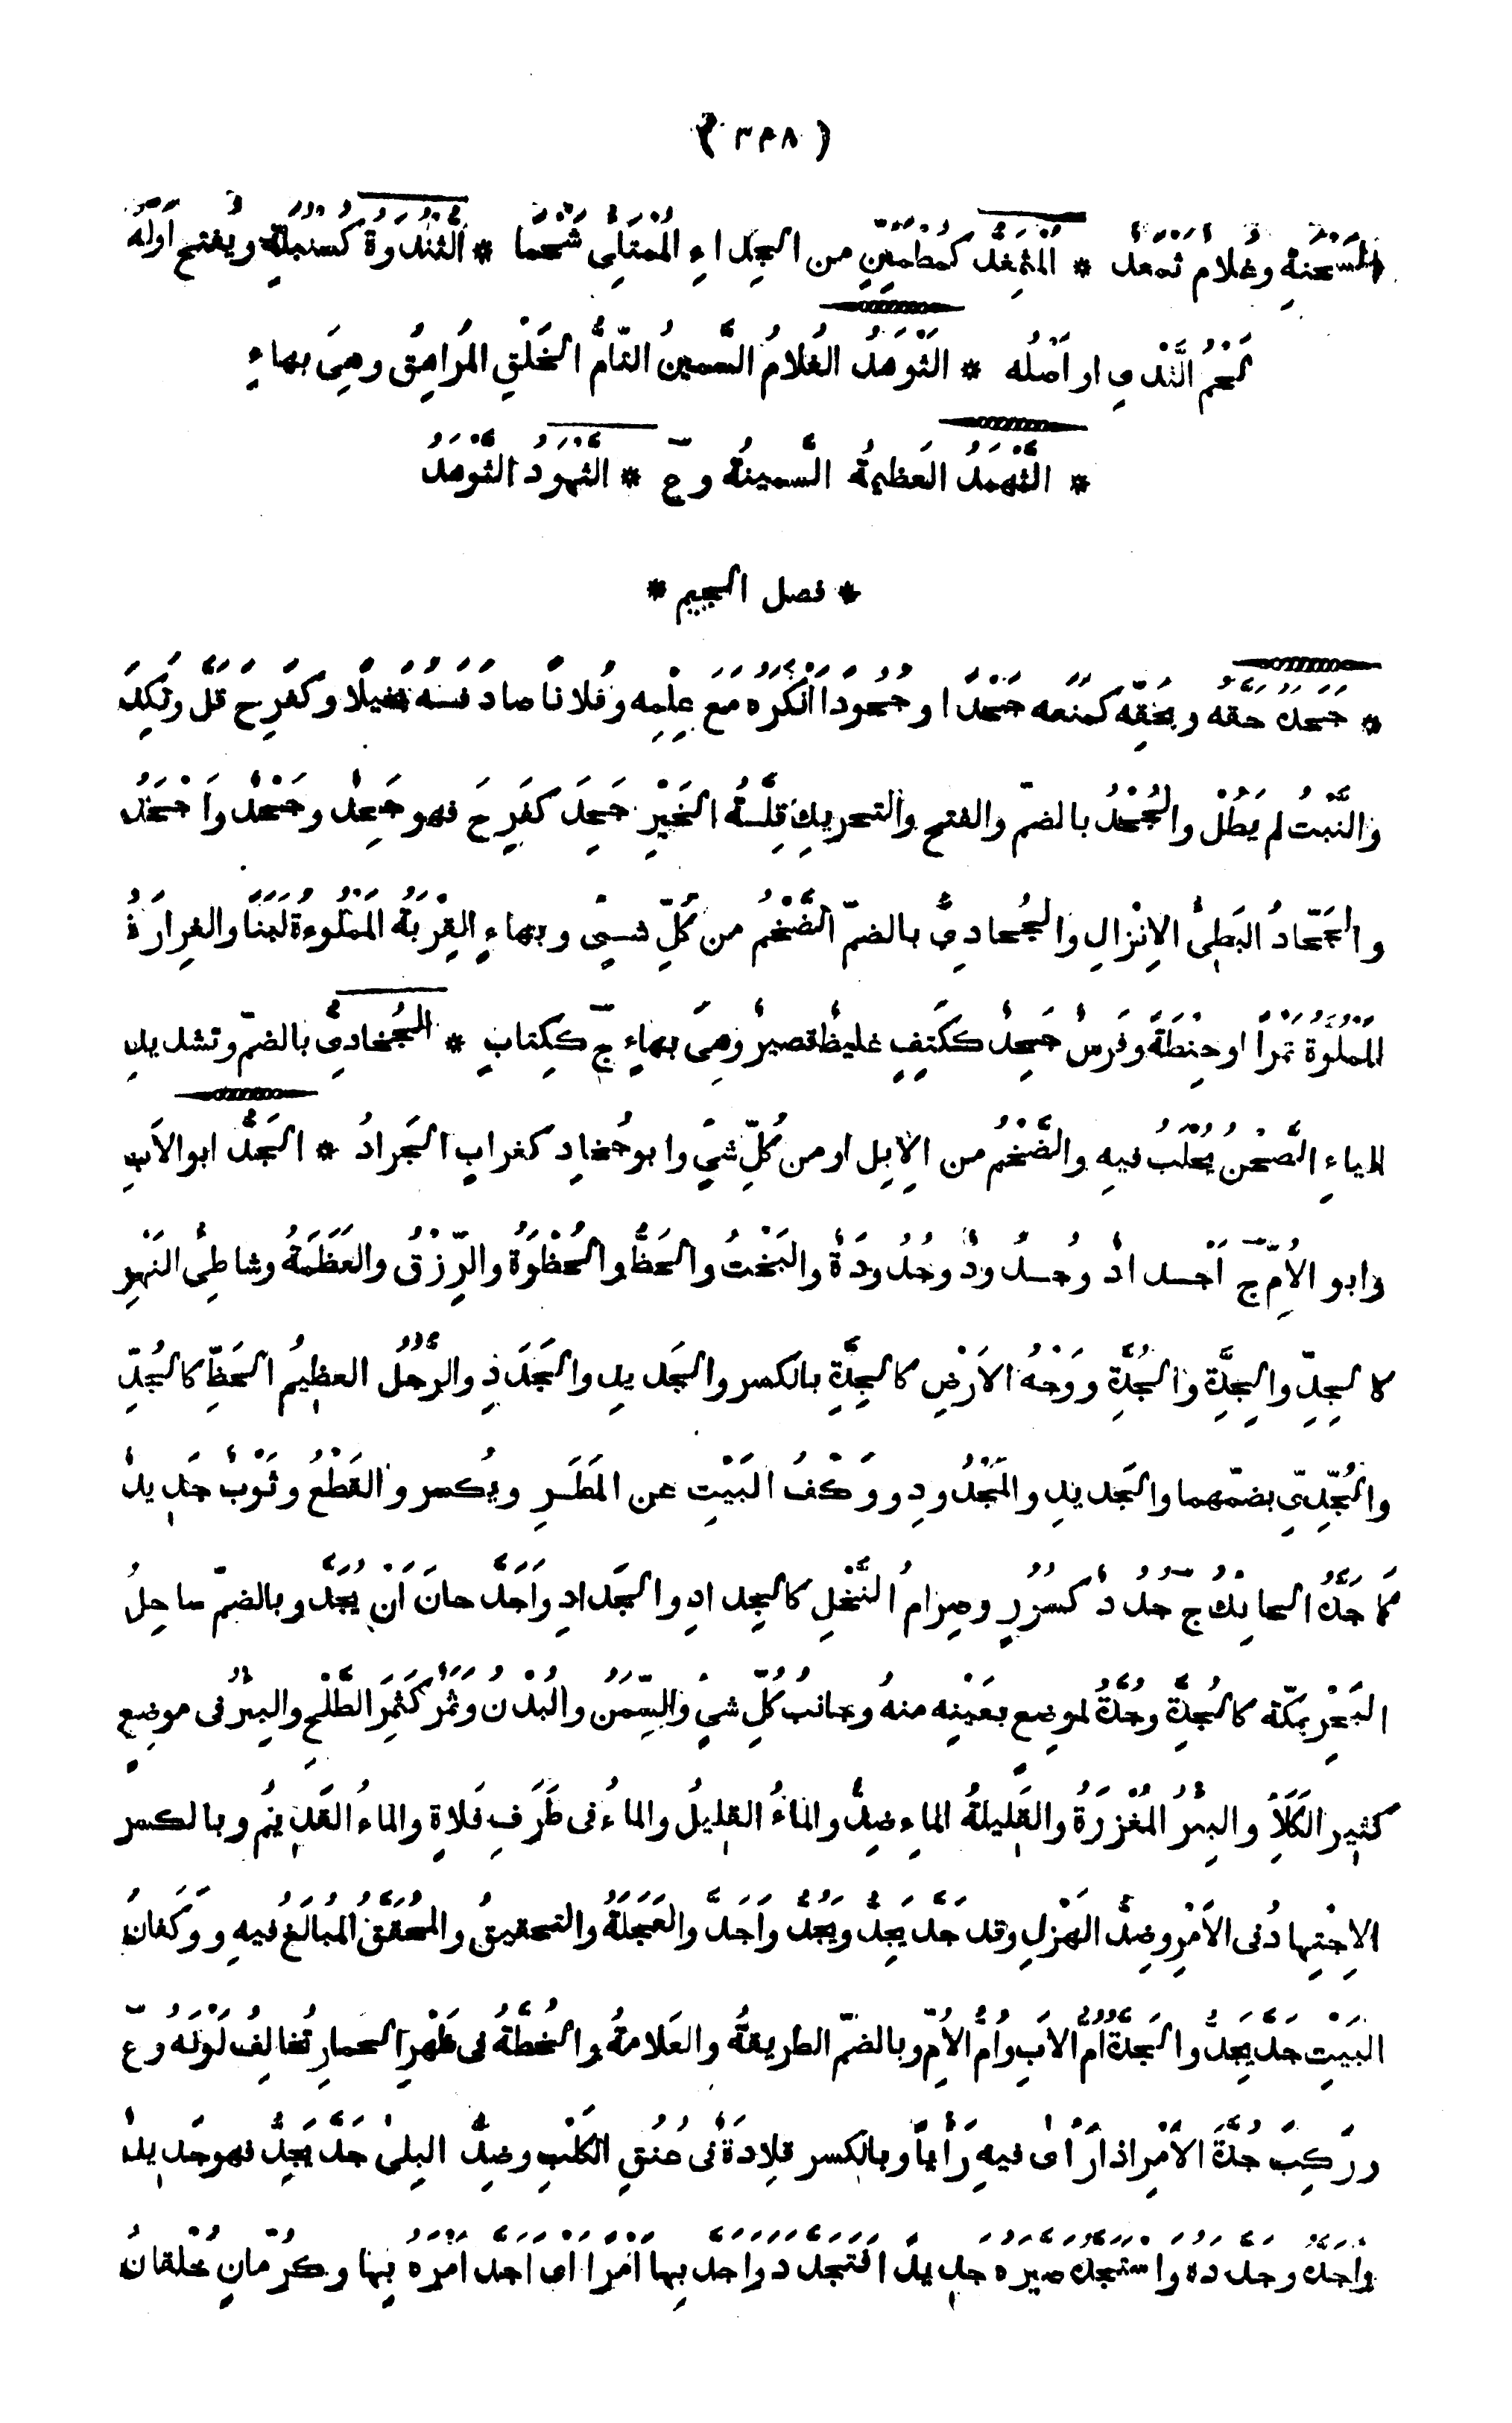 ( ٣٣٨ )
السَّحنةِ وغُلامٌ ثَمْعَدٌ * المُثْمَغِدُّ كمُطْمَئِنٍّ من الجِداءِ المُمْتَلِئُ شَحْمًا * الثُّنْدُوَةُ كسُنْبُلَةٍ ويُفتح أوّلُهُ
لَحْمُ الثَّدْيِ او أَصْلُه * الثَّوْهَدُ الغُلامُ السَّمينُ التّامُّ الخَلْقِ المُراهِقُ وهِيَ بهاءٍ
* الثَّهْمَدُ العَظيمةُ السَّمينةُ وع * الثَّهْوَدُ الثَّوْهَدُ
* فصل الجيم *
* جَحَدَ حَقَّهُ وبحَقِّه كمَنَعَه جَحْدًا وجُحُودًا أَنْكَرَهُ مَعَ عِلْمِه وفُلانًا صادَفَهُ بَخيلًا وكفَرِحَ قَلَّ ونَكِدَ
والنَّبْتُ لم يَطُلْ والجُحْدُ بالضمّ والفتح والتحريكِ قِلَّةُ الخَيْرِ جَحِدَ كفَرِحَ فهو جَحِدٌ وجَحْدٌ وأَجْحَدُ
والجَحّادُ البَطِئُ الإنْزالِ والجُحادِيُّ بالضمّ الضَّخْمُ من كُلِّ شيْءٍ وبهاءٍ القِرْبَةُ المَمْلُوءةُ لَبَنًا والغِرارَةُ
المَمْلُوَّةُ تَمْرًا او حِنْطَةً وفَرَسٌ جَحِدٌ ككَتِفٍ غليظٌ قصيرٌ وهِيَ بهاءٍ ج ككِتابٍ * الجُخادِيُّ بالضمّ وتشديدِ
الياءِ الصَّحْنُ يُحْلَبُ فيهِ والضَّخْمُ من الإبِلِ او من كُلِّ شيْءٍ وابو جُخادٍ كغُرابٍ الجَرادُ * الجَدُّ ابو الأَبِ
وابو الأُمِّ ج أَجْدادٌ وجُدُودٌ وجُدُودَةٌ والبَخْتُ والحَظُّ والحُظْوَةُ والرِّزْقُ والعَظَمَةُ وشاطِئُ النَّهْرِ
كالجِدِّ والجِدَّةِ والجُدَّةِ ووَجْهُ الأَرْضِ كالجِدَّةِ بالكسر والجَديدِ والجَدَدِ والرَّجُلُ العظيمُ الحَظِّ كالجُدِّ
والجُدِّيِّ بضمّهما والجَديدِ والمَجْدُودِ ووَكْفُ البَيْتِ عن المَطَرِ ويُكسر والقَطْعُ وثَوْبٌ جَديدٌ
كما جَدَّهُ الحائِكُ ج جُدُدٌ كسُرُرٍ وصِرامُ النَّخْلِ كالجِدادِ والجَدادِ وأَجَدَّ حانَ أَنْ يُجَدَّ وبالضمّ ساحِلُ
البَحْرِ بمَكّة كالجُدَّةِ وجُدَّةُ لموضِعٍ بعَيْنِه منهُ وجانبُ كُلِّ شيْءٍ والسِّمَنُ والبُدْنُ وثَمَرٌ كثَمَرِ الطَّلْحِ والبِئْرُ فى موضِعٍ
كثيرِ الكَلَأِ والبِئْرُ المُغْزِرَةُ والقَليلةُ الماءِ ضِدٌّ والماءُ القليلُ والماءُ فى طَرَفِ فَلاةٍ والماءُ القَديمُ وبالكسر
الاِجْتِهادُ فى الأَمْرِ وضِدُّ الهَزْلِ وقد جَدَّ يَجِدُّ ويَجُدُّ وأَجَدَّ والعَجَلَةُ والتحقيقُ والمُحَقَّقُ المُبالَغُ فيهِ ووَكَفانُ
البَيْتِ جَدَّ يَجِدُّ والجَدَّةُ أُمُّ الأَبِ وأُمُّ الأُمِّ وبالضمّ الطريقةُ والعَلامةُ والخُطَّةُ فى ظَهْرِ الحمارِ تُخالِفُ لَوْنَهُ وع
ورَكِبَ جُدَّةَ الأَمْرِ اذا رَأَى فيهِ رَأْيًا وبالكسر قِلادَةٌ فى عُنُقِ الكَلْبِ وضِدُّ البِلَى جَدَّ يَجِدُّ فهو جَديدٌ
وأَجَدَّهُ وجَدَّدَهُ واسْتَجَدَّهُ صَيَّرَهُ جَديدًا فتَجَدَّدَ وأَجَدَّ بِها أَمْرًا أى أَجَدَّ أَمْرَهُ بِها وكرُمّانٍ خُلْقانُ